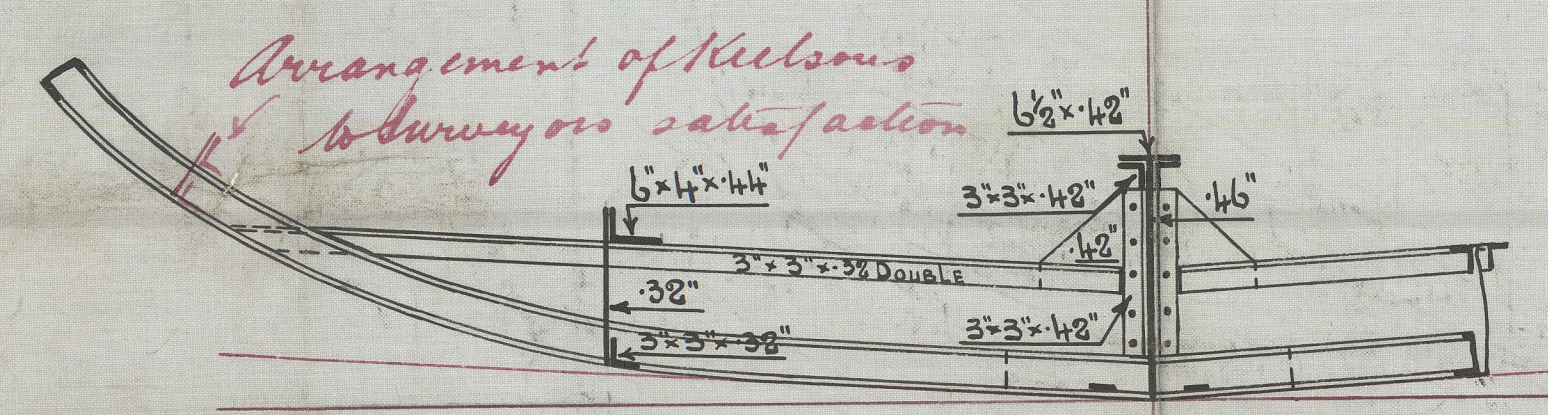 Arrangement of Keelsons
to Surveyors satisfaction
6½"×·42"
6"×4"×·44"
3"×3"×·42"
·46"
·42"
3"×3"×·32 DOUBLE
·32"
3"×3"×·42"
3"×3"×·32"